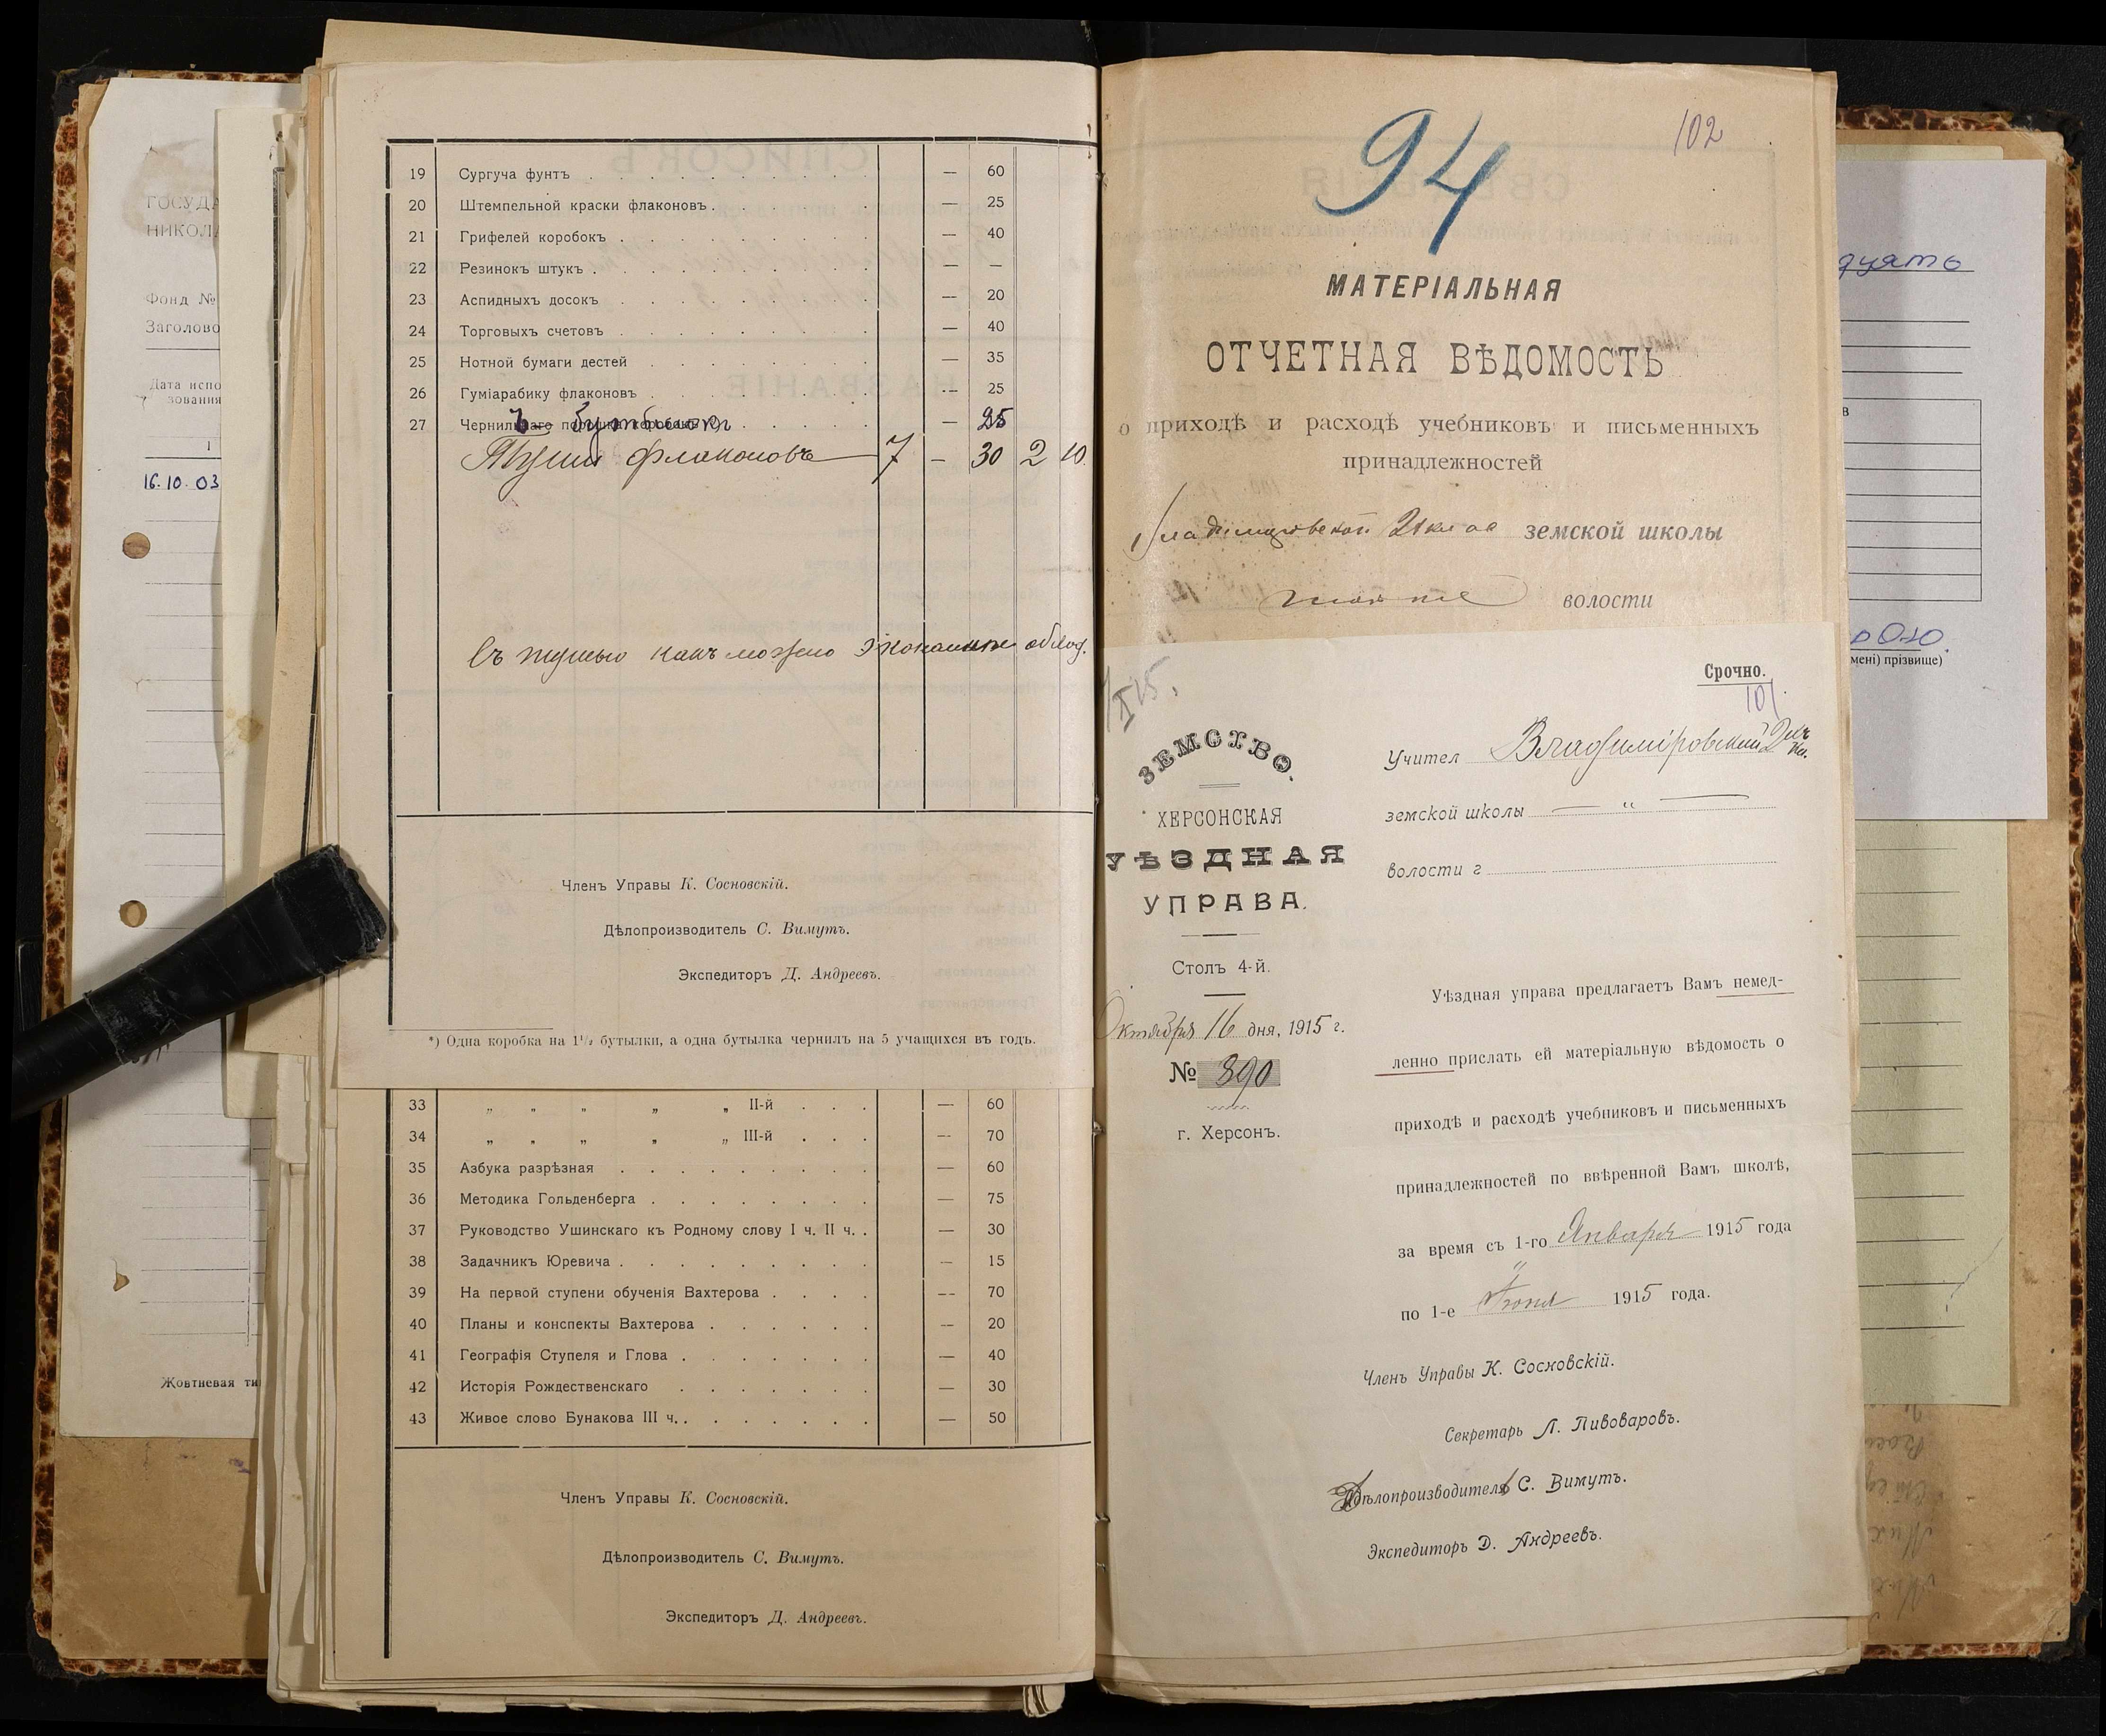 19 Сургуча фунтъ — 60
20 Штемпельной краски флаконовъ — 25
21 Грифелей коробокъ — 40
22 Резинокъ штукъ — —
23 Аспидныхъ досокъ — 20
24 Торговыхъ счетовъ — 40
25 Нотной бумаги дестей — 35
26 Гуміарабику флаконовъ — 25
27 — 25
Туши флаконовъ 7 — 30 2 10
Съ тушью какъ можно
Членъ Управы К. Сосновскій.
Дѣлопроизводитель С. Вимутъ.
Экспедиторъ Д. Андреевъ.
*) Одна коробка на 1¹/₂ бутылки, а одна бутылка чернилъ на 5 учащихся въ годъ.
33 „ „ „ „ „ II-й — 60
34 „ „ „ „ „ III-й — 70
35 Азбука разрѣзная — 60
36 Методика Гольденберга — 75
37 Руководство Ушинскаго къ Родному слову I ч. II ч. — 30
38 Задачникъ Юревича — 15
39 На первой ступени обученія Вахтерова — 70
40 Планы и конспекты Вахтерова — 20
41 Географія Ступеля и Глова — 40
42 Исторія Рождественскаго — 30
43 Живое слово Бунакова III ч. — 50
Членъ Управы К. Сосновскій.
Дѣлопроизводитель С. Вимутъ.
Экспедиторъ Д. Андреевъ.
94
102
МАТЕРІАЛЬНАЯ
ОТЧЕТНАЯ ВѢДОМОСТЬ
о приходѣ и расходѣ учебниковъ и письменныхъ
принадлежностей
земской школы
волости
Срочно.
101
ЗЕМСТВО.
ХЕРСОНСКАЯ
УѢЗДНАЯ
УПРАВА.
Столъ 4-й.
Октября 16 дня, 1915 г.
№ 890
г. Херсонъ.
Учител Владиміровской 2
земской школы — „ —
волости г
Уѣздная управа предлагаетъ Вамъ немед-
ленно прислать ей матеріальную вѣдомость о
приходѣ и расходѣ учебниковъ и письменныхъ
принадлежностей по ввѣренной Вамъ школѣ,
за время съ 1-го Января 1915 года
по 1-е Іюня 1915 года.
Членъ Управы К. Сосновскій.
Секретарь Л. Пивоваровъ.
Дѣлопроизводитель С. Вимутъ.
Экспедиторъ Д. Андреевъ.
ГОСУДА
НИКОЛА
Фонд №
Заголово
Дата испо
зования
1
16.10.03
Жовтневая ти
мені) прізвище)